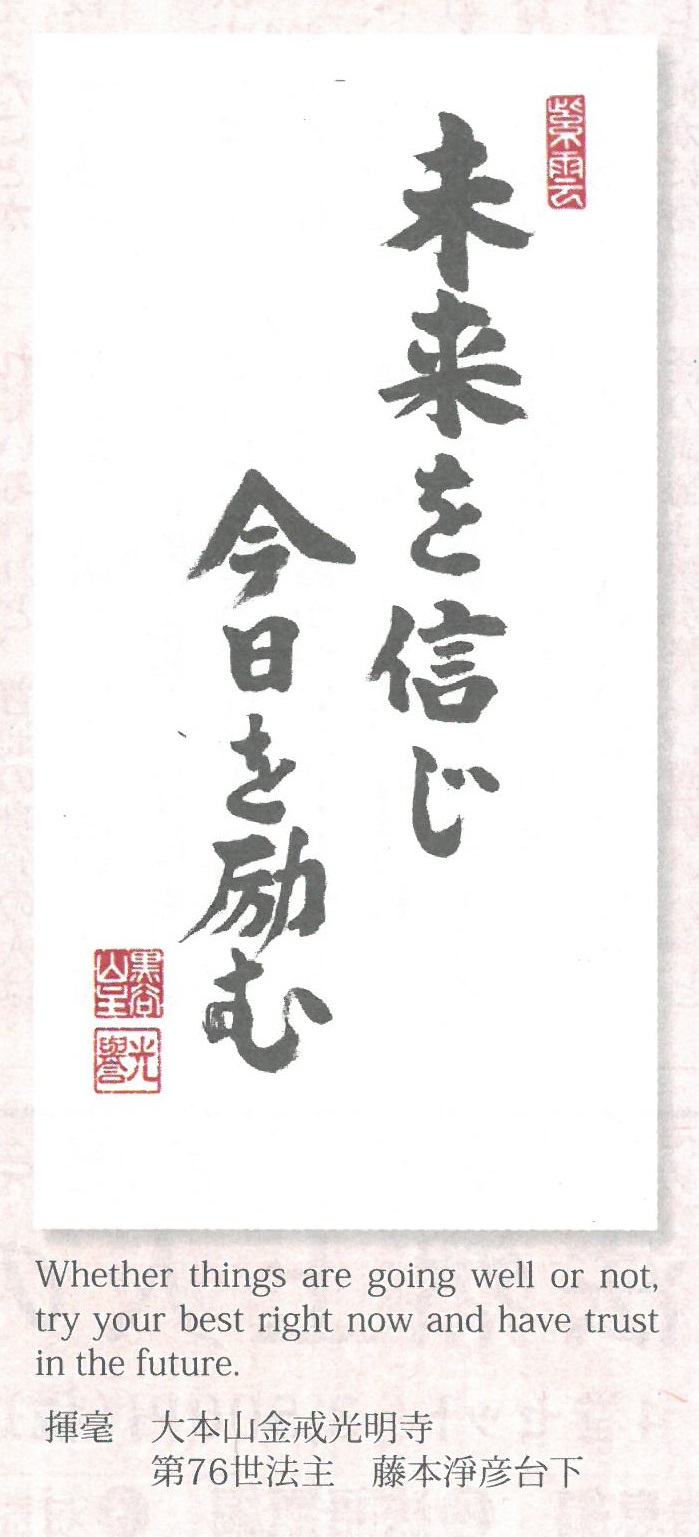 紫雲
未来を信じ
今日を励む
黒谷
山主
光
譽
Whether things are going well or not,
try your best right now and have trust
in the future.
揮毫　大本山金戒光明寺
第76世法主　藤本淨彦台下